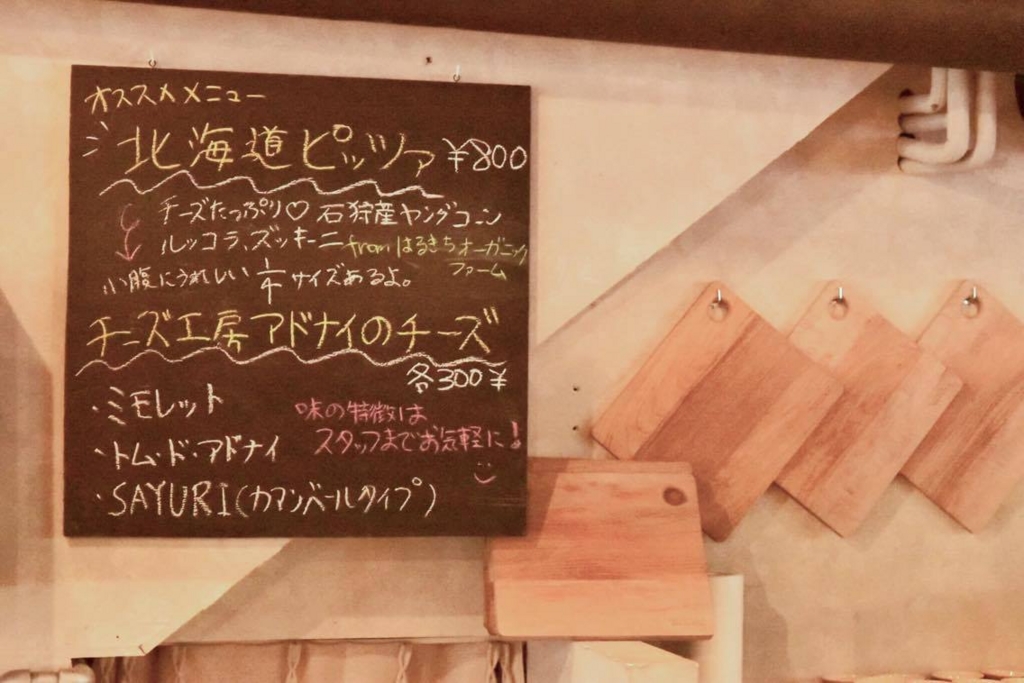 オススメメニュー
北海道ピッツァ ¥800
チーズたっぷり♡ 石狩産ヤングコーン
ルッコラ、ズッキーニ from はるきちオーガニック
ファーム
小腹にうれしい 1/4 サイズあるよ。
チーズ工房アドナイのチーズ
各300¥
・ミモレット
味の特徴は
スタッフまでお気軽に!
・トム・ド・アドナイ
・SAYURI(カマンベールタイプ)